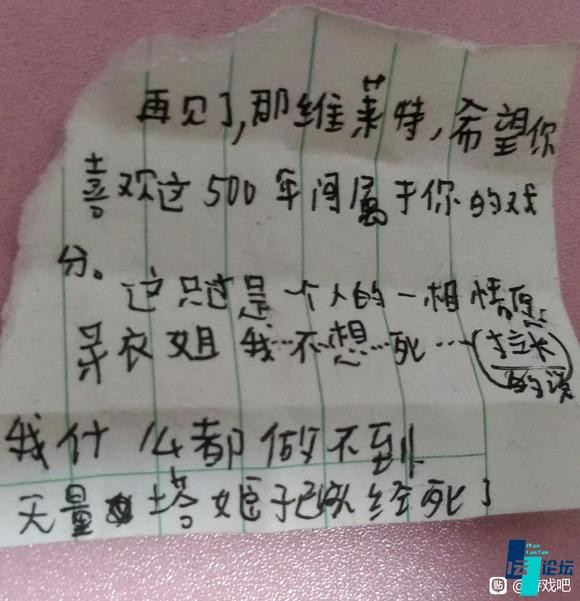 再见了,那维莱特,希望你
喜欢这500年间属于你的戏
分。
这只过是一个人的一相情愿
衣姐 我…不想…死…(拉米
的说)
我什么都做不到
无量塔姬子已经死了
论坛
贴 @游戏吧